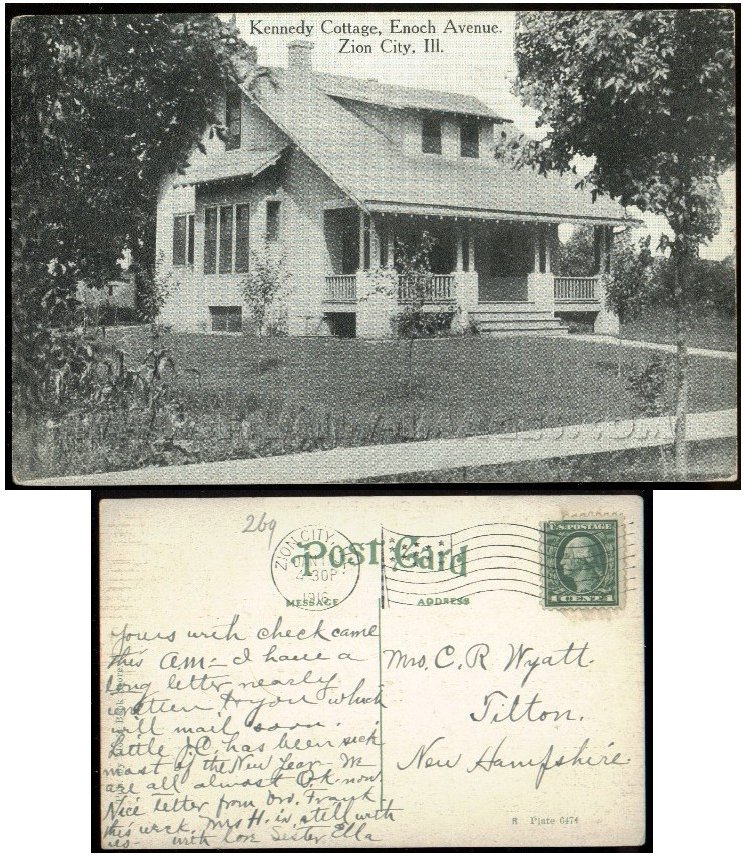 Kennedy Cottage, Enoch Avenue.
Zion City, Ill.
269
ZION CITY
JAN
4-30P
1916
Post Card
MESSAGE
ADDRESS
U.S. POSTAGE
1 CENT
yours with check came
this AM - I have a
long letter nearly
written to you which
will mail soon.
Little J.C. has been sick
most of the New Year - We
are all almost O.K. now.
Nice letter from Bro. Frank
this week. Mrs H. is still with
us - with love Sister Ella
Mrs. C. R. Wyatt.
Tilton.
New Hampshire.
Plate 6474